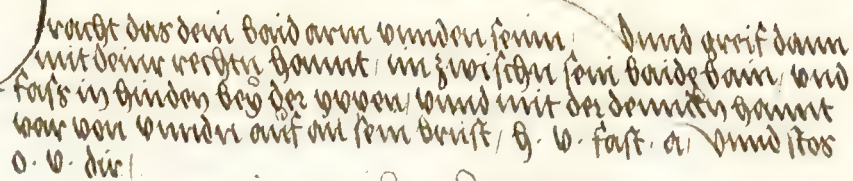 Tracht das dein baid arm vnnden seinn / Vnnd greif dann
mit deinr rechtn hannt / im zwischn sein baide bain / vnd
fass in hinden bey der yppen / vnnd mit der dennckn hannt
var von vnndn auf an sein brust / h. v. fast. a / vnnd stos
o. v. dir /